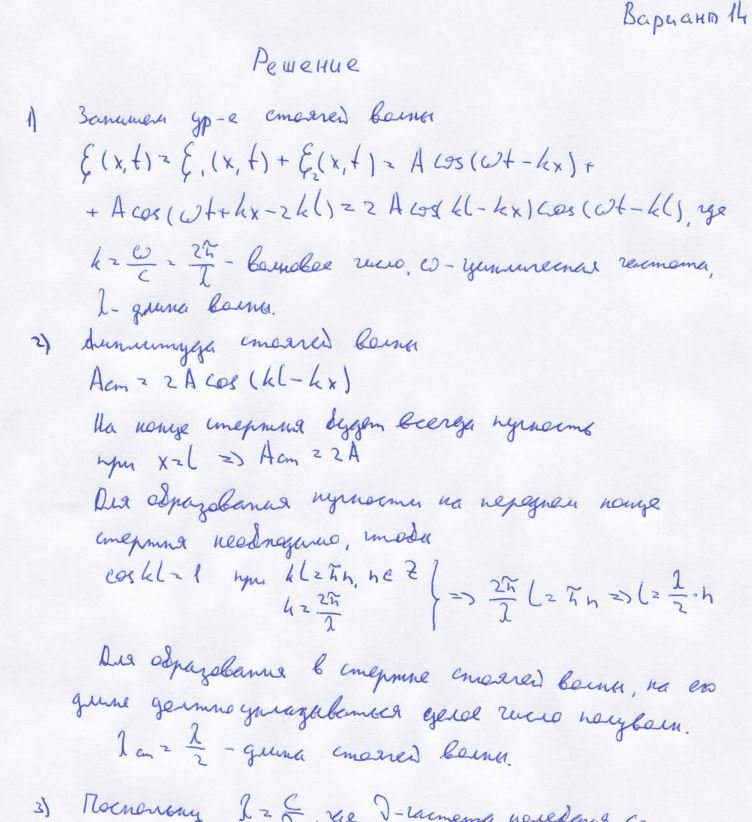 Вариант 14
Решение
1) Запишем ур-е стоячей волны
ξ(x,t) = ξ₁(x,t) + ξ₂(x,t) = A cos(ωt – kx) +
+ A cos(ωt + kx – 2kl) = 2 A cos(kl – kx) cos(ωt – kl), где
k = ω/c = 2π/λ – волновое число, ω – циклическая частота,
λ – длина волны.
2) Амплитуда стоячей волны
Aст = 2A cos(kl – kx)
На конце стержня будет всегда пучность
при x = l => Aст = 2A
Для образования пучности на переднем конце
стержня необходимо, чтобы
cos kl = 1 при kl = πn, n ∈ Z
k = 2π/λ } => 2π/λ l = πn => l = λ/2 · n
Для образования в стержне стоячей волны, на его
длине должно укладываться целое число полуволн.
λст = λ/2 – длина стоячей волны.
3) Поскольку λ = c/ν, где ν – частота колебания